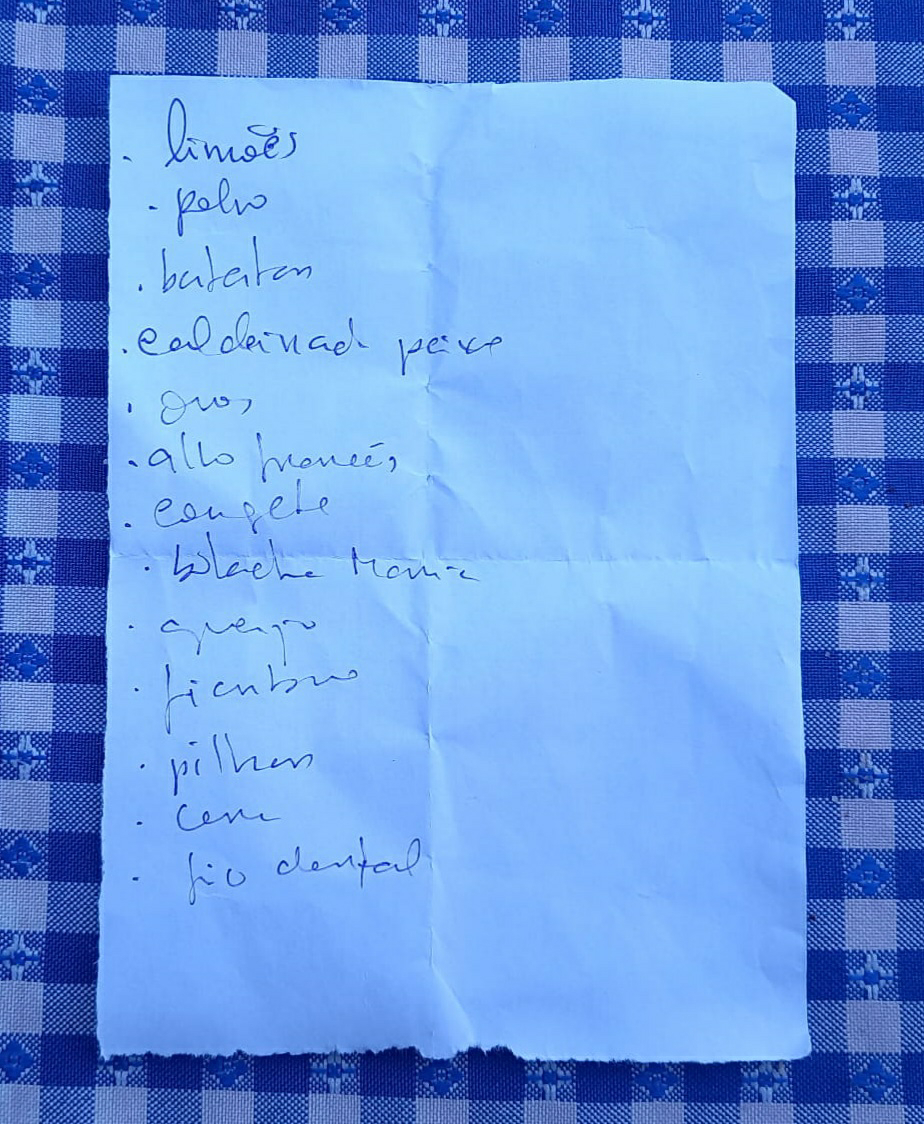 . limões
. polvo
. batatas
. caldeirada peixe
. ovos
. alho francês
. courgete
. bolacha Maria
. queijo
. fiambre
. pilhas
. cera
. fio dental